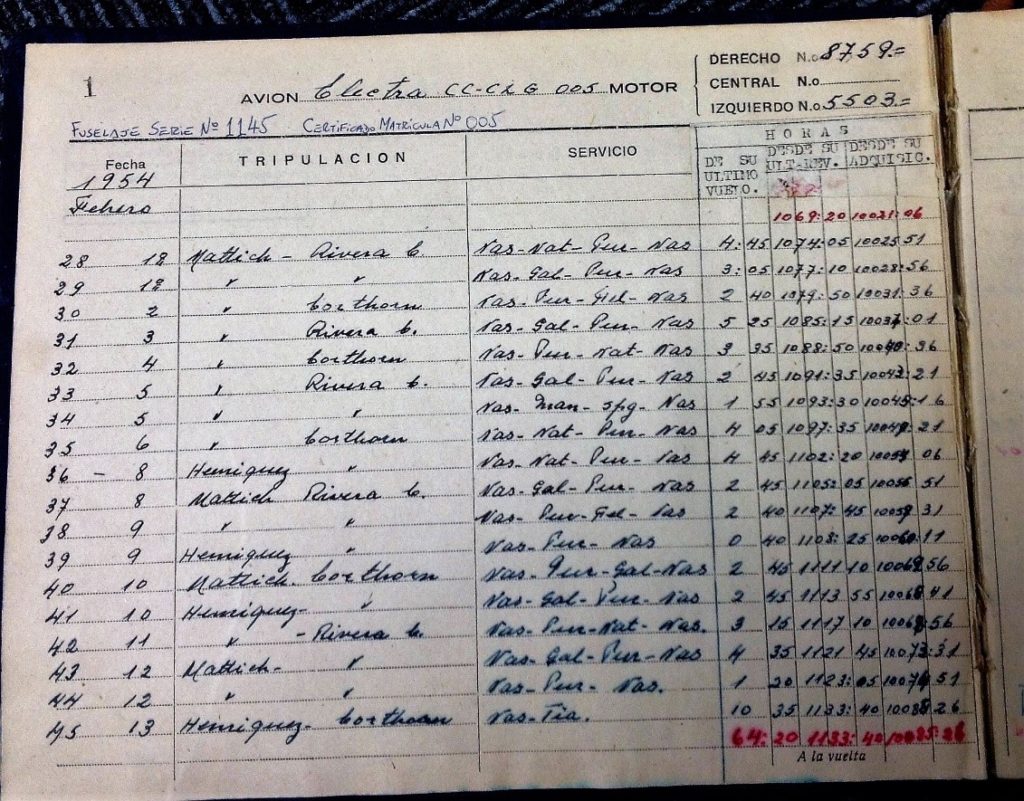 1 AVION Electra CC-CLG 005 MOTOR
DERECHO N.o 8759.=
CENTRAL N.o
IZQUIERDO N.o 5503.=
FUSELAJE SERIE Nº 1145 CERTIFICADO MATRICULA Nº 005
HORAS
Fecha TRIPULACION SERVICIO DE SU ULTIMO VUELO. DESDE SU ULT-REV. DESDE SU ADQUISIC.
1954
Febrero 1069:20 10021:06
28 18 Mattich - Rivera C. Nas-Nat-Pur-Nas 4:45 1074:05 10025 51
29 18 " " Nas-Gal-Pur-Nas 3:05 1077:10 10028:56
30 2 " Corthorn Nas-Pur-Fel-Nas 2 40 1079:50 10031:36
31 3 " Rivera C. Nas-Gal-Pur-Nas 5 25 1085:15 10037:01
32 4 " Corthorn Nas-Pur-Nat-Nas 3 35 1088:50 10040:36
33 5 " Rivera C. Nas-Gal-Pur-Nas 2 45 1091:35 10043:21
34 5 " " Nas-Man-Spg-Nas 1 55 1093:30 10045:16
35 6 " Corthorn Nas-Nat-Pur-Nas 4 05 1097:35 10049:21
36 - 8 Henriquez " Nas-Nat-Pur-Nas 4 45 1102:20 10054 06
37 8 Mattich Rivera C. Nas-Gal-Pur-Nas 2 45 1105:05 10056 51
38 9 " " Nas-Pur-Fel-Nas 2 40 1107:45 10059 31
39 9 Henriquez " Nas-Pur-Nas 0 40 1108:25 10060:11
40 10 Mattich. Corthorn Nas-Pur-Gal-Nas 2 45 1111 10 10062:56
41 10 Henriquez- " Nas-Gal-Pur-Nas 2 45 1113 55 10065 41
42 11 " - Rivera C. Nas-Pur-Nat-Nas. 3 15 1117 10 10068:56
43 12 Mattich- " Nas-Gal-Pur-Nas 4 35 1121 45 10073:31
44 12 " " Nas-Pur-Nas. 1 20 1123:05 10074 51
45 13 Henriquez- Corthorn Nas-Tia. 10 35 1133:40 10085 26
64:20 1133:40 10085:26
A la vuelta